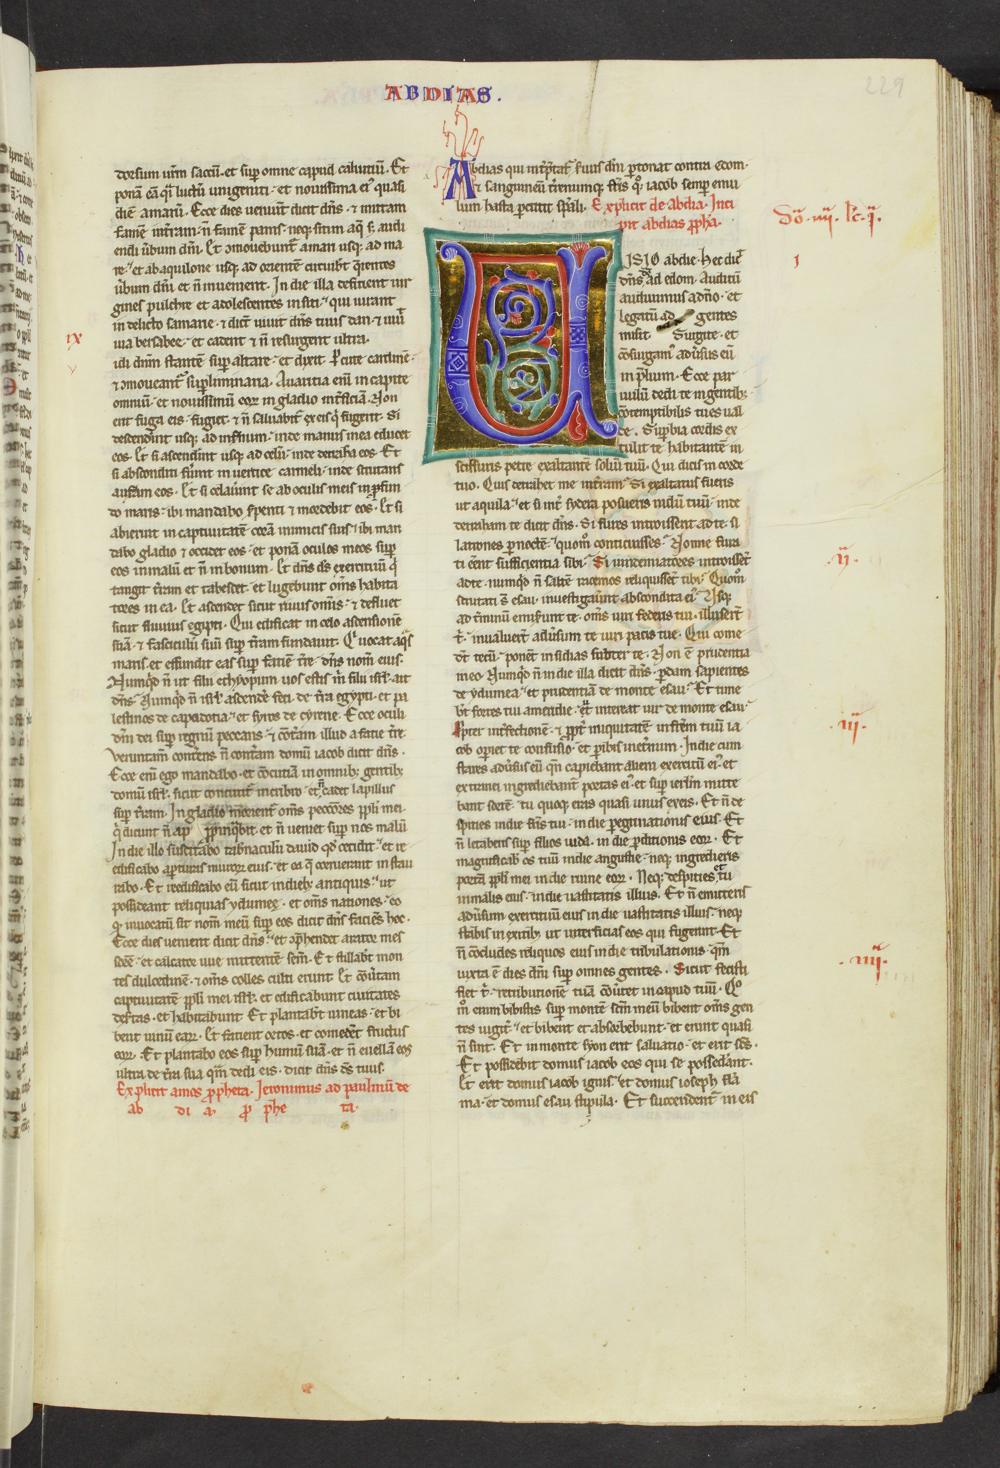 ABDIAS.
229
dorsum ur̃m saccū. et sup̱ omne capud caluitiū. Et
ponā eā q̃si luctū unigeniti. et nouissima ei' quasi
diē amarū. Ecce dies ueniūt dicit dñs. ⁊ mittam
famē in t̃ram. ñ famē panis. neq; sitim aq̃. s; audi
endi ũbum dñi. Et ↄmouebunt̃ a mari usq; ad ma
re. et ab aquilone usq; ad orientē. circuibt̃ q̃rentes
ũbum dñi et ñ inuenient. In die illa deficient uir
gines pulchre et adolescentes in siti. qui iurant
in delicto samarie. ⁊ dict̃ uiuit dñs tuus dan. ⁊ uiuit
uia bersabee. et cadent ⁊ ñ resurgent ultra.
idi dñm stantē sup̱ altare. et dixit. P̱cute cardinē.
ix
⁊ ↄmoueant̃ sup̱liminaria. Auaritia enī in capite
omniū. et nouissimū eoꝝ in gladio int̃ficiā. Non
erit fuga eis. fugiet. ⁊ ñ saluabit̃ ex eis q̃ fugerit. Si
descendint usq; ad infnum. inde manus mea educet
eos. Et si ascendint usq; ad celū. inde detrahā eos. Et
si absconditi fũint in uertice carmeli. inde scrutans
aufam eos. Et si celauint se ab oculis meis in p̱fun
do maris. ibi mandabo serpenti ⁊ mordebit eos. Et si
abierint in captiuitatē corā inimicis suis. ibi man
dabo gladio ⁊ occidet eos. et ponā oculos meos sup̱
eos in malū et ñ in bonum. Et dñs ds̃ exercituū q̃
tangit t̃ram et tabescet. et lugebunt om̃s habita
tores in ea. Et ascendet sicut riuus omnis. ⁊ defluet
sicut fluuius egipti. Qui edificat in celo ascensionē
suā. ⁊ fasciculū suū sup̱ t̃ram fundauit. Qi uocat aq̃s
maris. et effundit eas sup̱ faciē t̃re. dñs nom̃ eius.
Numqd̃ ñ ut filii ethyopum uos estis m̃ filii isrl̃. ait
dñs. Numqd̃ ñ isrl̃ ascende feci. de t̃ra egypti. et pa
lestinos de capadocia. et syros de cyrene. Ecce oculi
dñi dei sup̱ regnū peccans. ⁊ ↄteram illud a facie t̃re.
Veruntam̃ conterens ñ conteram domū iacob dicit dñs.
Ecce enī ego mandabo. et ↄcutiā in omnib; gentib;
domū isrl̃. sicut concutit̃ in cribro. et ñ cadet lapillus
sup̱ t̃ram. In gladio morient̃ om̃s peccores pp̱li mei.
q̃ dicunt ñ ap p̱pinq̃bit. et ñ ueniet sup̱ nos malū
In die illo suscitabo tabnaculū dauid qd̃ cecidit. et re
edificabo ap̱turas muroꝝ eius. et ea q̃ corruerant instau
rabo. Et reedificabo eū sicut in dieb; antiquis. ut
possideant reliquias ydumeę. et om̃s nationes. eo
q̃ inuocatū sit nom̃ meū sup̱ eos dicit dñs faciēs hec.
Ecce dies uenient dicit dñs. et ↄp̱hendet arator mes
sorē. et calcator uue mittentē sem̃. Et stillabt̃ mon
tes dulcedinē. ⁊ om̃s colles culti erunt. Et cõũtam
captiuitatē pp̱li mei isrl̃. et edificabunt ciuitates
dertas. et habitabunt. Et plantabt̃ uineas. et bi
bent uinū earꝝ. Et facient ortos. et comedēt fructus
eoꝝ. Et plantabo eos sup̱ humū suā. et ñ euellā eos
ultra de t̃ra sua qm̃ dedi eis. dicit dñs ds̃ tuus.
Explicit amos p̱pheta. Ieronimus ad paulinū de
ab di a p̱ phe ta.
Abdias qui int̃p̱tat̃ s̃uus dñi. p̱tonat contra edom.
⁊ sanguineū t̃renumq; fr̃is q; iacob semp̱ emu
lum hasta p̱cutit sp̱ali. Explicit de abdia. Inci
pit abdias p̱ph̃a.
Do. iiii. lc̄. i.
VISIO abdie. Hec dic̃
i
dñs ds̃ ad edom. Auditū
audiuimus a dño. et
legatū ad gentes
misit. Surgite. et
ↄsurgam' adũsus eū
in p̱lium. Ecce par
uulū dedi te in gentib;
ↄtemptibilis tu es ual
de. Sup̱bia cordis ex
tulit te habitantē in
scissuris petre. exaltantē soliū tuū. Qui dicis in corde
tuo. Quis detrahet me in t̃ram. Si exaltatus fueris
ut aquila. et si int̃ sydera posueris nidū tuū. inde
detraham te dicit dñs. Si fures introissent ad te. si
latrones p̱ noctē. quom̃ conticuisses. Nonne fura
ti eēnt sufficientia sibi. Si uindemiatores introissēt
ii.
ad te. numqd̃ ñ saltē racemos reliquissēt tibi. Quom̃
scrutati s̃ esau. inuestigaũunt abscondita ei'. Usq;
ad t̃minū emiserunt te. om̃s uiri federis tui. illuserūt
t'. inualuerūt aduersum te uiri pacis tue. Qui come
dūt tecū. ponent insidias subter te. Non ē prudentia
in eo. Numqd̃ ñ in die illa dicit dñs. p̱dam sapientes
de ydumea. et prudentiā de monte esau. Et time
bt̃ fortes tui a meridie. ut intereat uir de monte esau.
Propter int̃fectionē. ⁊ pp̱t iniquitatē in frēm tuū ia
iii.
cob op̱iet te confusio. et p̱ibis in et̃num. In die cum
stares adũsus eū. qn̄ capiebant alieni exercitū ei'. et
extranei ingrediebant̃ portas ei'. et sup̱ ierlm̃ mitte
bant sortē. tu quoq; eras quasi unus ex eis. Et ñ de
spicies in die fr̃is tui. in die p̱egrinationis eius. Et
ñ letabēris sup̱ filios iuda. in die p̱ditionis eoꝝ. Et
magnificab̃ os tuū in die angustie. neq; ingredieris
portā pp̱li mei in die ruine eoꝝ. Neq; despities et tu
in malis eius. in die uastitatis illius. Et ñ emitteris
aduersum exercitum eius in die uastitatis illius. neq;
stabis in exitib; ut interficias eos qui fugerint. Et
iiii.
ñ ↄcludes reliquos eius in die tribulationis. qm̃
iuxta ē dies dñi sup̱ omnes gentes. Sicut fecisti
fiet t'. retributionē tuā ↄũtet in capud tuū. Qo
m̃ enim bibistis sup̱ montē sc̃m meū. bibent om̃s gen
tes iugit'. et bibent et absorbebunt. et erunt quasi
ñ sint. Et in monte syon erit saluatio. et erit sc̃s.
Et possidebit domus iacob eos qui se possedant.
Et erit domus iacob ignis. et domus ioseph flā
ma. et domus esau stipula. Et succendent̃ in eis